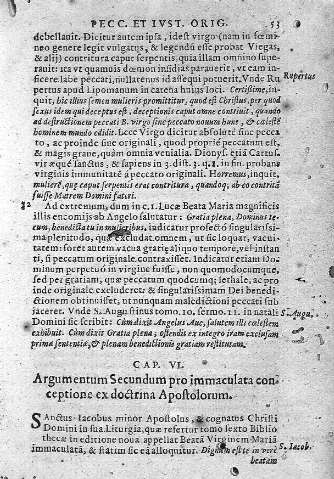 PECC. ET IVST. ORIG. 53
debellanit. Dicitur autem ipsa, idest virgo (nam in fœmi-
neo genere legit vulgatus, & legendũ esse probat Viegas,
& alij) contritura caput serpentis, quia illam omnino supe-
rauit: ita vt quamuis dæmon insidias parauerit, vt eam in-
ficeret labe peccati, nullatenus id assequi potuerit. Vnde Ru
pertus apud Lipomanum in catena huius loci. Certissime, in-
Rupertus
quit, hic illud semen mulieris promittitur, quod est Christus, per quod
sexus idem qui deceptus est, deceptionis caput omne contriuit, quando
ad destructionem peccati B. virgo sine peccato nouum hunc, & cælestẽ
hominem mundo edidit. Ecce Virgo dicitur absolutè sine pecca
to, ac proinde sine originali, quod propriè peccatum est,
& magis graue, quàm omnia venialia. Dionys. etiã Cartus.
vir æquè sanctus, & sapiens in 3. dist. 3. q. 1. in fin. probans
virginis immunitatẽ à peccato originali. Horremus, inquit,
mulierẽ, quæ caput serpentis erat contritura, quandoq; ab eo contritã
fuisse Matrem Domini fateri.
Ad extremum, dum in c. 1. Lucæ Beata Maria magnificis
illis encomijs ab Angelo salutatur: Gratia plena, Dominus te-
cum, benedicta tu in mulieribus, indicatur profectò singularissi-
ma plenitudo, quæ excludat omnem, vt sic loquar, vacui-
tatem: fore autem vacua gratiæ aliquo tempore, vel instan
ti, si peccatum originale contraxisset. Indicatur etiam Do-
minum perpetuò in virgine fuisse, non quomodocumque,
sed per gratiam, quæ peccatum quodcumq; lethale, ac pro
inde originale excluderet: & singularissimam Dei benedi-
ctionem obtinuisset, vt nunquam maledictioni peccati sub
iaceret. Vnde S. Augustinus tomo. 10. sermo. 11. in natali
S. Aug.
Domini sic scribit: Cùm dixit Angelus Aue, salutem illi cœlestem
exhibuit. Cùm dixit Gratia plena; ostendit ex integro iram exclusam
primæ sententiæ, & plenam benedictionis gratiam restitutam.
CAP. VI.
Argumentum Secundum pro immaculata con-
ceptione ex doctrina Apostolorum.
SAnctus Iacobus minor Apostolus, & cognatus Christi
Domini in sua Liturgia, quæ refertur tomo sexto Biblio
thecæ in editione noua appellat Beatã Virginem Mariã
immaculatã, & statim sic eã alloquitur. Dignum est te in verè
S. Iacob.
beatam